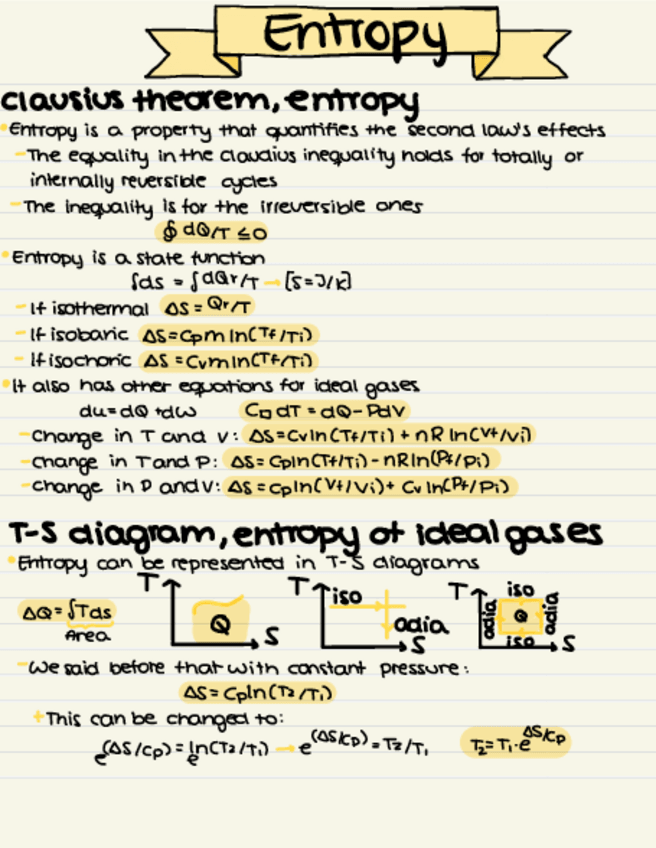 Entropy
clausius theorem, entropy
Entropy is a property that quantifies the second law's effects
-The equality in the claudius inequality holds for totally or
internally reversible cycles
-The inequality is for the irreversible ones
∮ dQ/T ≤0
Entropy is a state function
∫ds = ∫dQr/T → [S=J/K]
-If isothermal ΔS = Qr/T
-If isobaric ΔS=Cpm ln(Tf/Ti)
-If isochoric ΔS =Cvm ln(Tf/Ti)
It also has other equations for ideal gases
du=dQ+dw C□dT = dQ-PdV
-Change in T and V: ΔS=Cvln(Tf/Ti) + nR ln(Vf/Vi)
-change in T and P: ΔS= Cpln(Tf/Ti)-nRln(Pf/Pi)
-change in P and V: ΔS=Cpln(Vf/Vi)+ Cv ln(Pf/Pi)
T-S diagram, entropy of ideal gases
Entropy can be represented in T-S diagrams
ΔQ=∫Tds
Area
T Q S
T iso adia S
T iso adia Q adia iso S
-We said before that with constant pressure:
ΔS= Cpln(T2/T1)
+This can be changed to:
e^(ΔS/Cp) = e^ln(T2/T1) → e^(ΔS/Cp) = T2/T1 T2=T1·e^ΔS/Cp